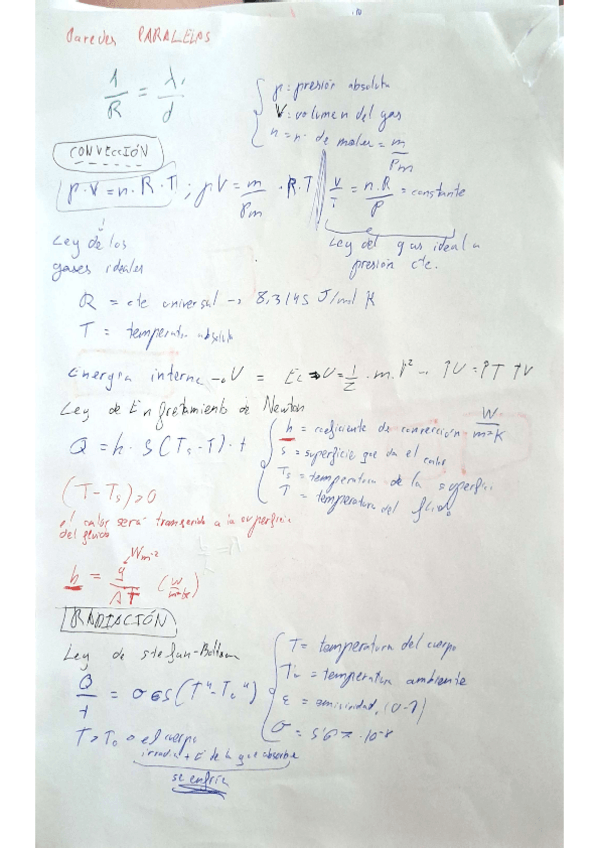 Paredes PARALELAS
1/R = λi/d
p: presión absoluta
V: volumen del gas
n = nº de moles = m/Pm
CONVECCIÓN
p·V = n·R·T ; pV = m/Pm · R·T
V/T = n·R/p = constante
Ley de los
gases ideales
Ley del gas ideal a
presión cte.
R = cte universal → 8,3145 J/mol K
T = temperatura absoluta
Energía interna → U = Ec ⇒ U = 1/2 · m · V² → ↑U = ↑T ↑V
Ley de Enfriamiento de Newton
Q = h · S (Ts - T) · t
h = coeficiente de convección W/m²K
S = superficie que da el calor
Ts = temperatura de la superficie
T = temperatura del fluido
(T - Ts) > 0
el calor será transferido a la superficie
del fluido
h = q/ΔT (W/m²K)
Wm⁻²
RADIACIÓN
Ley de Stefan-Boltzman
Q/t = σεS (T⁴ - To⁴)
T = temperatura del cuerpo
To = temperatura ambiente
ε = emisividad, (0-1)
σ = 5'67 · 10⁻⁸
T > To → el cuerpo
irradia + E de la que absorbe
se enfría